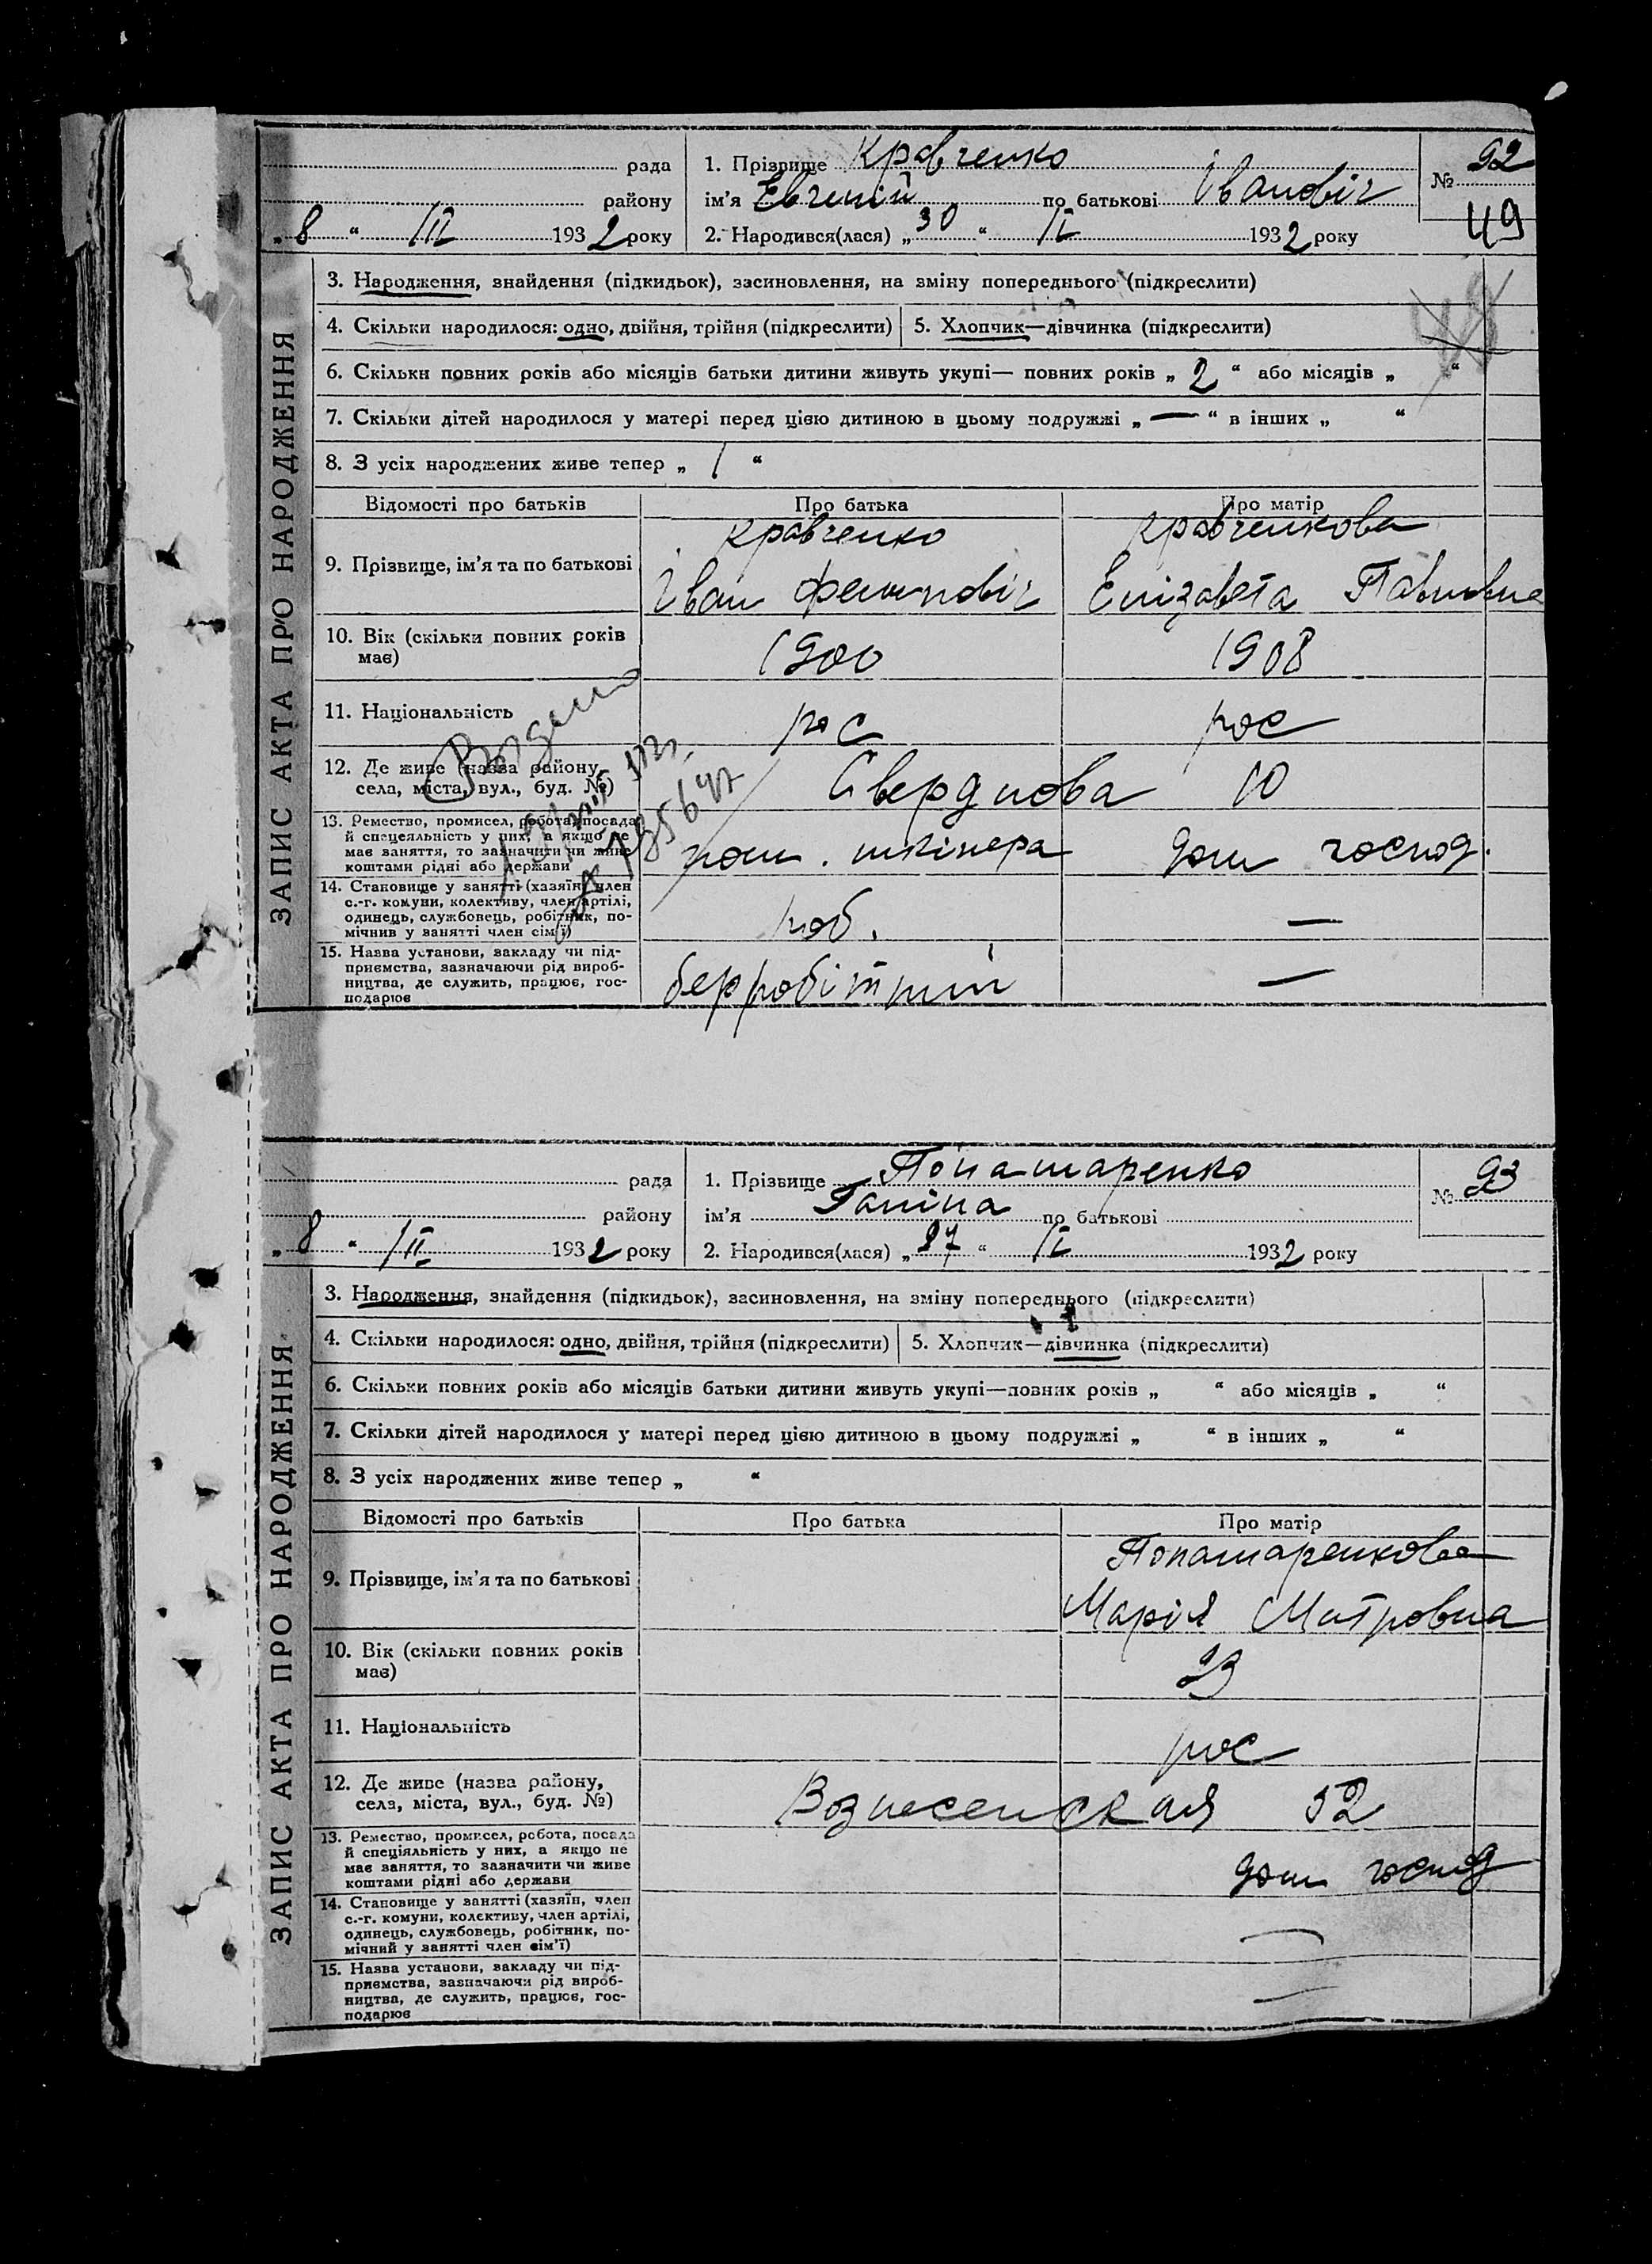 рада
1. Прізвище Кравченко
№ 92
району
ім'я Евгеній по батькові Івановіч
49
„ 8 “ III 1932 року
2. Народився(лася) „ 30 “ II 1932 року
ЗАПИС АКТА ПРО НАРОДЖЕННЯ
3. Народження, знайдення (підкидьок), засиновлення, на зміну попереднього (підкреслити)
4. Скільки народилося: одно, двійня, трійня (підкреслити)
5. Хлопчик—дівчинка (підкреслити)
6. Скільки повних років або місяців батьки дитини живуть укупі— повних років „ 2 “ або місяців „ “
7. Скільки дітей народилося у матері перед цією дитиною в цьому подружжі „ — “ в інших „ “
8. З усіх народжених живе тепер „ 1 “
Відомості про батьків
Про батька
Про матір
9. Прізвище, ім'я та по батькові
Кравченко
Іван
Кравченкова
Елізавета Павловна
10. Вік (скільки повних років
має)
1900
1908
11. Національність
рос
рос
12. Де живе (назва району,
села, міста, вул., буд. №)
Свердлова 10
13. Ремество, промисел, робота, посада
й спецеяльність у них, а якщо не
має заняття, то зазначити чи живе
коштами рідні або держави
пом.
дом господ.
14. Становище у занятті (хазяїн, член
с.-г. комуни, колективу, член артілі,
одинець, службовець, робітник, по-
мічнив у занятті член сім'ї)
роб.
—
15. Назва установи, закладу чи під-
приємства, зазначаючи рід вироб-
ництва, де служить, працює, гос-
подарює
—
рада
1. Прізвище Понамаренко
№ 93
району
ім'я Галіна по батькові
„ 8 “ III 1932 року
2. Народився(лася) „ 27 “ II 1932 року
ЗАПИС АКТА ПРО НАРОДЖЕННЯ
3. Народження, знайдення (підкидьок), засиновлення, на зміну попереднього (підкреслити)
4. Скільки народилося: одно, двійня, трійня (підкреслити)
5. Хлопчик—дівчинка (підкреслити)
6. Скільки повних років або місяців батьки дитини живуть укупі—повних років „ “ або місяців „ “
7. Скільки дітей народилося у матері перед цією дитиною в цьому подружжі „ “ в інших „ “
8. З усіх народжених живе тепер „ “
Відомості про батьків
Про батька
Про матір
9. Прізвище, ім'я та по батькові
Понамаренкова
Марія Митровна
10. Вік (скільки повних років
має)
23
11. Національність
рос
12. Де живе (назва району,
села, міста, вул., буд. №)
Вознесенская 52
13. Ремество, промисел, робота, посада
й спеціяльність у них, а якщо не
має заняття, то зазначити чи живе
коштами рідні або держави
дом господ
14. Становище у занятті (хазяїн, член
с.-г. комуни, колективу, член артілі,
одинець, службовець, робітник, по-
мічний у занятті член сім'ї)
—
15. Назва установи, закладу чи під-
приємства, зазначаючи рід вироб-
ництва, де служить, працює, гос-
подарює
—